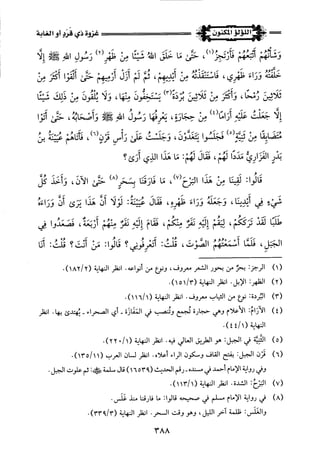 اللؤلؤ المكنون
غزوة ذي قرد أو الغابة
وَشَأْنُهُمْ أَتْبَعُهُمْ فَأَرْتَجِزُ(١)، حَتَّى مَا خَلَقَ اللهُ شَيْئًا مِنْ ظَهْرِ(٢) رَسُولِ اللهِ ﷺ إِلَّا
خَلَّفْتُهُ وَرَاءَ ظَهْرِي، فَاسْتَنْقَذْتُهُ مِنْ أَيْدِيهِمْ، ثُمَّ لَمْ أَزَلْ أَرْمِيهِمْ حَتَّى أَلْقَوْا أَكْثَرَ مِنْ
ثَلَاثِينَ رُمْحًا، وَأَكْثَرَ مِنْ ثَلَاثِينَ بُرْدَةً(٣) يَسْتَخِفُّونَ مِنْهَا، وَلَا يُلْقُونَ مِنْ ذَلِكَ شَيْئًا
إِلَّا جَعَلْتُ عَلَيْهِ آرَامًا(٤) مِنْ حِجَارَةٍ، يَعْرِفُهَا رَسُولُ اللهِ ﷺ وَأَصْحَابُهُ، حَتَّى أَتَوْا
مُتَضَايِقًا مِنْ ثَنِيَّةٍ(٥) فَجَلَسُوا يَتَغَدَّوْنَ، وَجَلَسْتُ عَلَى رَأْسِ قَرْنٍ(٦)، فَأَتَاهُمْ عُيَيْنَةُ بنُ
بَدْرٍ الفَزَارِيُّ مَدَدًا لَهُمْ، فَقَالَ لَهُمْ: مَا هَذَا الذِي أَرَى؟
قَالُوا: لَقِينَا مِنْ هَذَا البَرْحَ(٧)، مَا فَارَقَنَا بِسَحَرٍ(٨) حَتَّى الآنَ، وَأَخَذَ كُلَّ
شَيْءٍ فِي أَيْدِينَا، وَجَعَلَهُ وَرَاءَ ظَهْرِهِ، فَقَالَ عُيَيْنَةُ: لَوْلَا أَنَّ هَذَا يَرَى أَنَّ وَرَاءَهُ
طَلَبًا لَقَدْ تَرَكَكُمْ، لِيَقُمْ إِلَيْهِ نَفَرٌ مِنْكُمْ، فَقَامَ إِلَيْهِ نَفَرٌ مِنْهُمْ أَرْبَعَةٌ، فَصَعَدُوا فِي
الجَبَلِ، فَلَمَّا أَسْمَعْتُهُمُ الصَّوْتَ، قُلْتُ: أَتَعْرِفُونِي؟ قَالُوا: مَنْ أَنْتَ؟ قُلْتُ: أَنَا
(١) الرجز: بحرٌ من بحور الشعر معروف، ونوع من أنواعه. انظر النهاية (١٨٢/٢).
(٢) الظهر: الإبل. انظر النهاية (١٥١/٣).
(٣) البُردة: نوع من الثياب معروف. انظر النهاية (١١٦/١).
(٤) الآرَامُ: الأعلام وهي حجارة تُجمع وتُنصب في المَفَازَة ـ أي الصحراء ـ يُهتدى بها. انظر
النهاية (٤٤/١).
(٥) الثَّنِيَّة في الجبل: هو الطريق العالي فيه. انظر النهاية (٢٢٠/١).
(٦) قَرْن الجبل: بفتح القاف وسكون الراء أعلاه. انظر لسان العرب (١٣٥/١١).
وفي رواية الإمام أحمد في مسنده ـ رقم الحديث (١٦٥٣٩) قال سلمة ﷺ: ثم علوت الجبل.
(٧) البَرْحُ: الشدة. انظر النهاية (١١٣/١).
(٨) في رواية الإمام مسلم في صحيحه قالوا: ما فارقنا منذ غَلَس.
والغَلَس: ظلمة آخر الليل، وهو وقت السحر. انظر النهاية (٣٣٩/٣).
٣٨٨